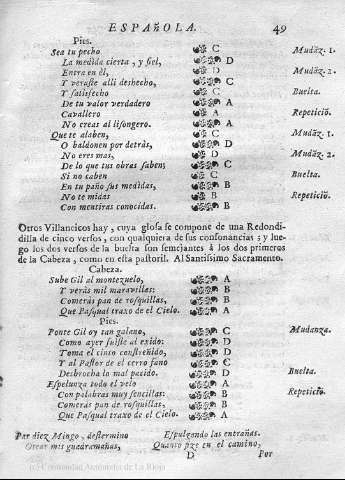 ESPAÑOLA. 49
Pies.
Sea tu pecho C Mudāz. 1.
La medida cierta, y fiel, D
Entra en èl, D Mudāz. 2.
Y veràste alli deshecho, C
Y satisfecho C Buelta.
De tu valor verdadero A
Cavallero A Repetició.
No creas al lisongero. A
Que te alaben, C Mudāz. 1.
O baldonen por detràs, D
No eres mas, D Mudāz. 2.
De lo que tus obras saben; C
Si no caben C Buelta.
En tu paño sus medidas, B
No te midas B Repetició.
Con mentiras conocidas. B
Otros Villancicos hay, cuya glosa se compone de una Redondi-
dilla de cinco versos, con qualquiera de sus consonancias; y lue-
go los dos versos de la buelta son semejantes à los dos primeros
de la Cabeza, como en esta pastoril. Al Santissimo Sacramento.
Cabeza.
Sube Gil al montezuelo, A
Y veràs mil maravillas: B
Comeràs pan de rosquillas, B
Que Pasqual traxo de el Cielo. A
Pies.
Ponte Gil oy tan galano, C Mudanza.
Como ayer fuiste al exido: D
Toma el cinto constreñido, D
Y al Pastor de el cerro fano C
Desbrocha lo mal pacido. D Buelta.
Espelunza todo el velo A
Con palabras muy sencillas: B Repetició.
Comeràs pan de rosquillas, B
Que Pasqual traxo de el Cielo. A
Par diez Mingo, determino
Orear mis guadramañas,
Espulgando las entrañas.
Quanto pze en el camino,
D Por
(c) Comunidad Autónoma de La Rioja